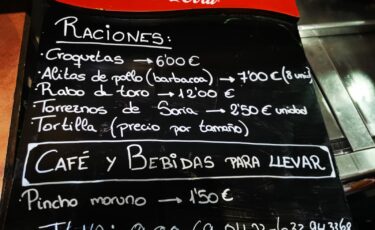 RACIONES:
·Croquetas → 6'00 €
·Alitas de pollo (barbacoa) → 7'00 € (8 unid)
·Rabo d toro → 12'00 €
·Torreznos de Soria → 2'50 € unidad
Tortilla (precio por tamaño)
CAFÉ Y BEBIDAS PARA LLEVAR
·Pincho moruno → 1'50 €